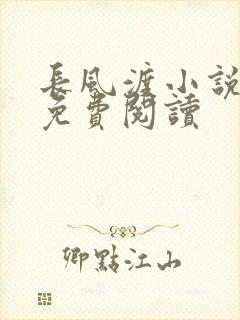 長風渡小說
免費閱讀
卿點江山